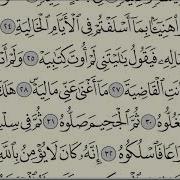 هَنِيٓـَٔۢا بِمَآ أَسۡلَفۡتُمۡ فِي ٱلۡأَيَّامِ ٱلۡخَالِيَةِ ٢٤
مَالِهِۦ فَيَقُولُ يَٰلَيۡتَنِي لَمۡ أُوتَ كِتَٰبِيَهۡ ٢٥ وَلَمۡ أَدۡرِ
كَانَتِ ٱلۡقَاضِيَةَ ٢٧ مَآ أَغۡنَىٰ عَنِّي مَالِيَهۡۜ ٢٨ هَلَكَ
فَغُلُّوهُ ٣٠ ثُمَّ ٱلۡجَحِيمَ صَلُّوهُ ٣١ ثُمَّ فِي
ذِرَاعٗا فَٱسۡلُكُوهُ ٣٢ إِنَّهُۥ كَانَ لَا يُؤۡمِنُ بِٱللَّهِ